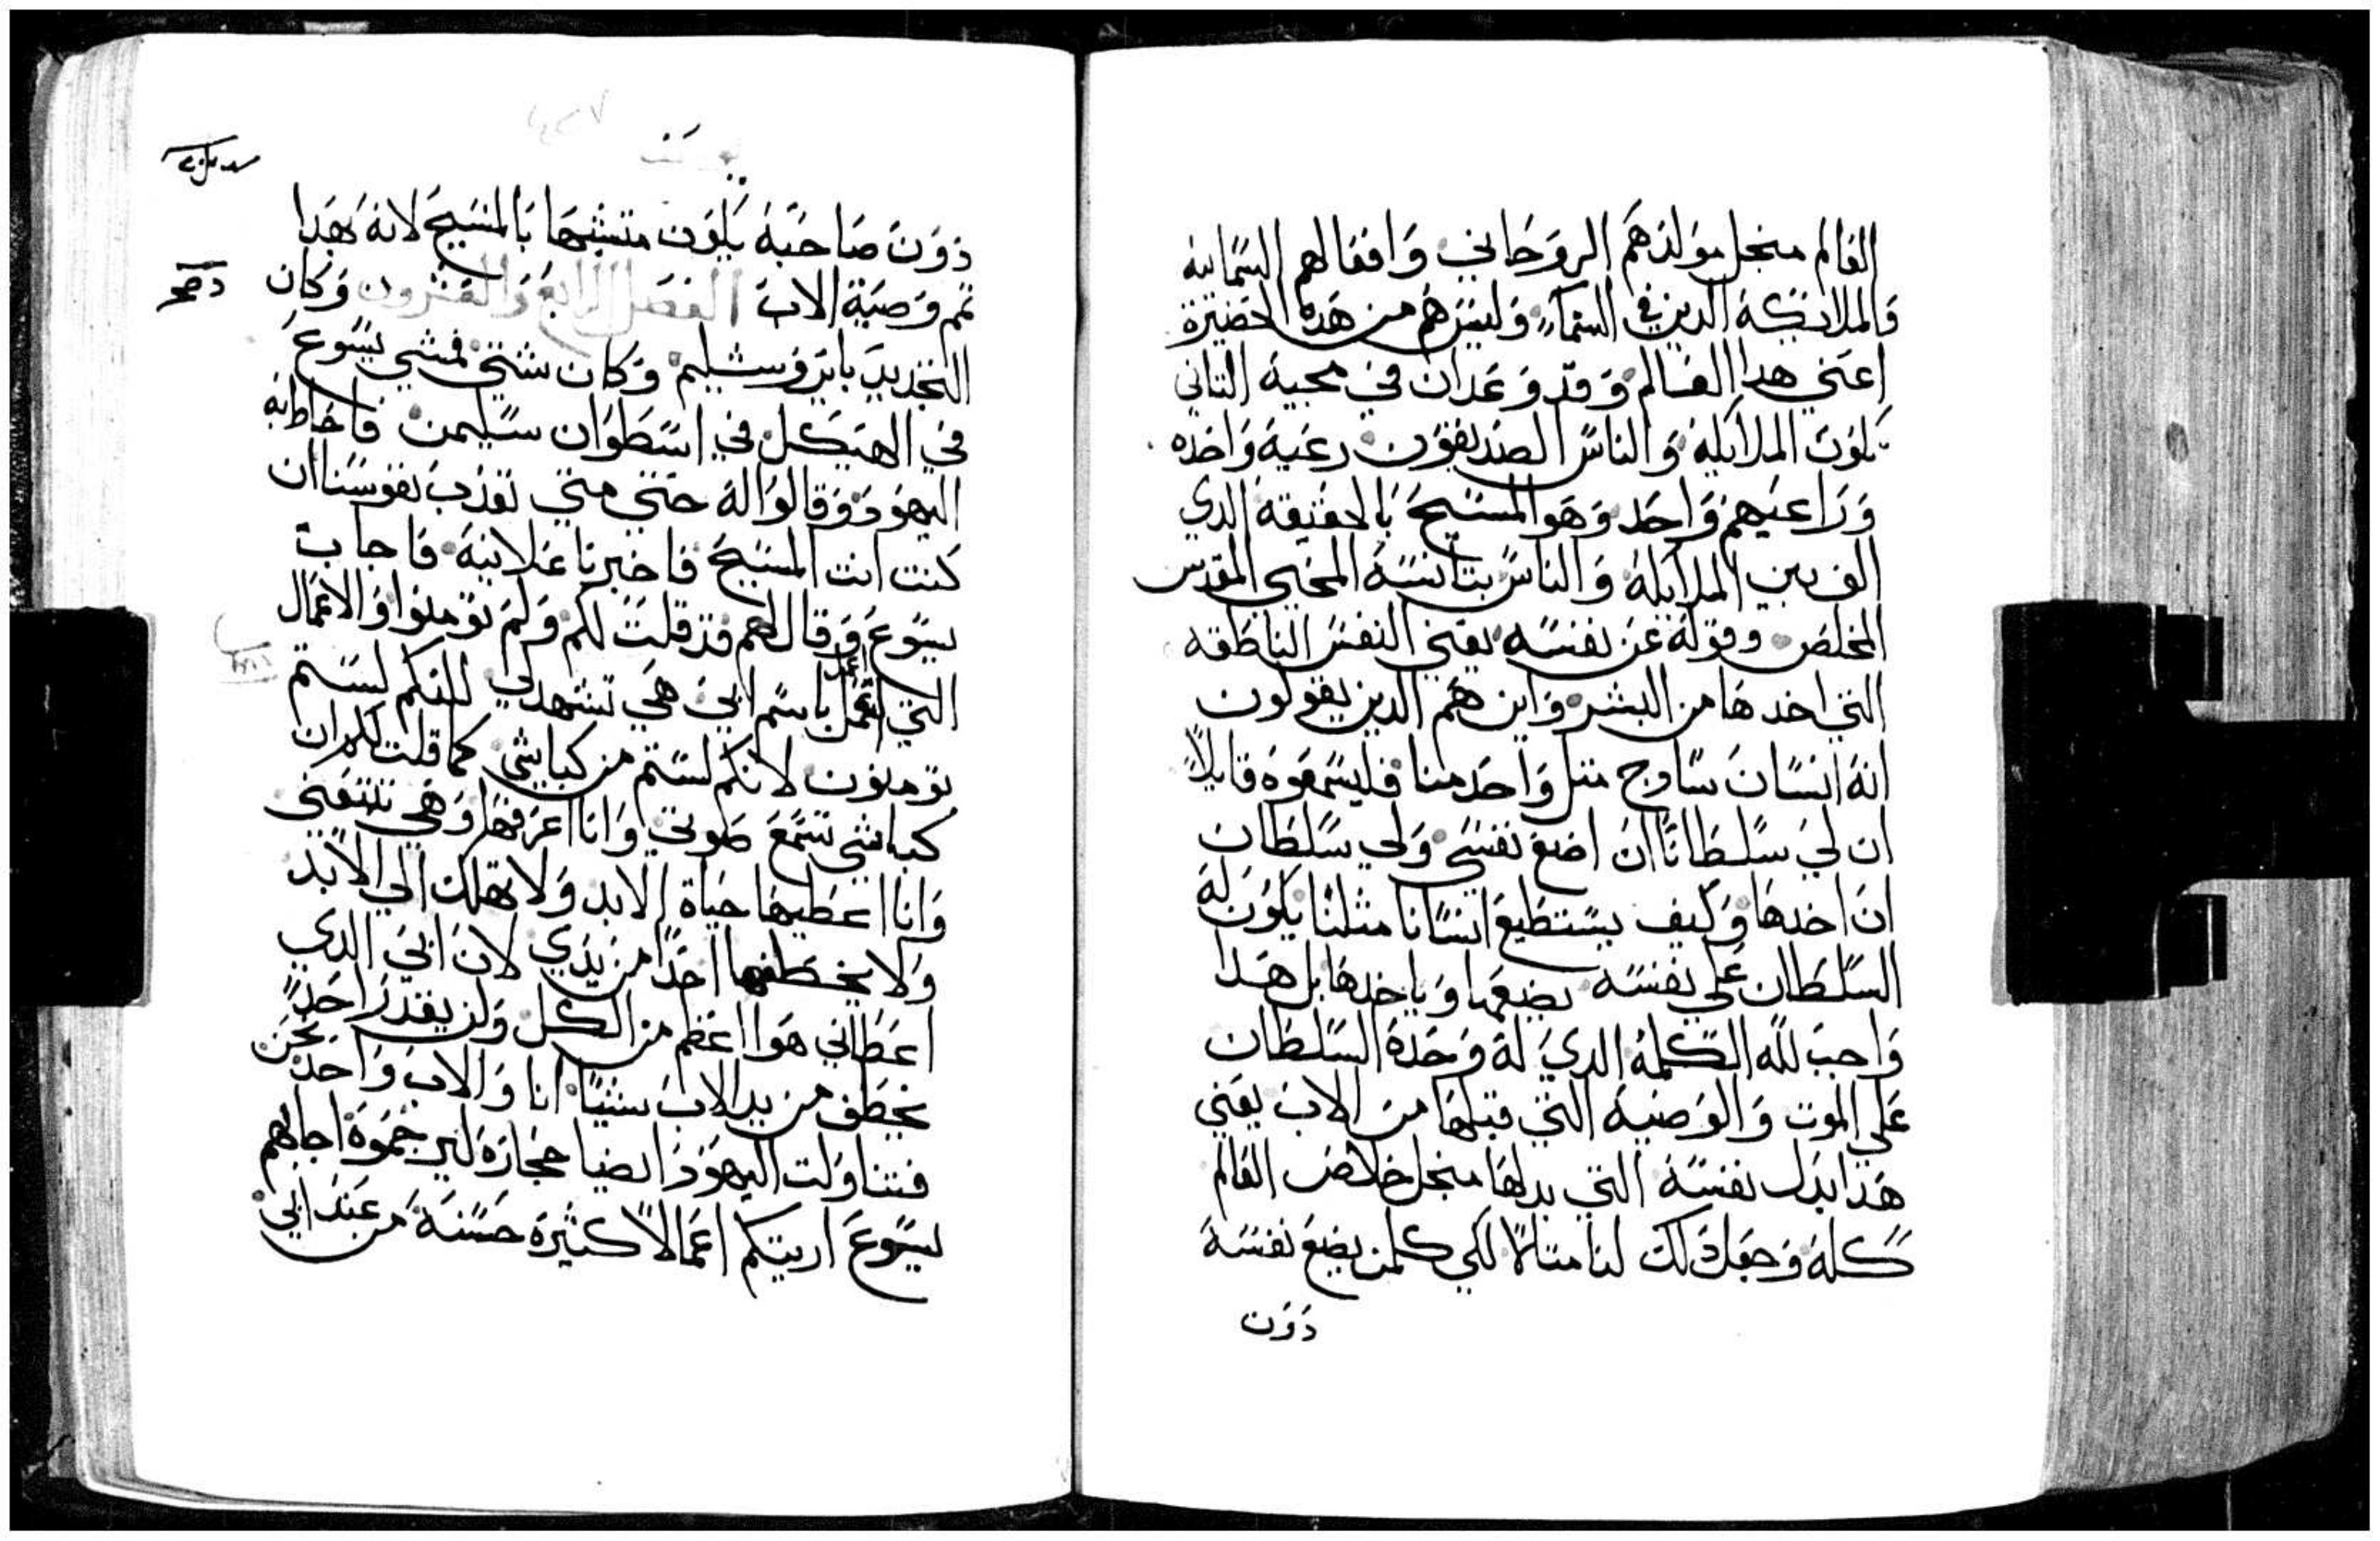 العالم منجل مولدهم الروحاني وافعالهم السمائية
والملائكة الدين في السماء وليس هم من هده الحضيرة
اعني هدا العالم وقد وعد ان في مجيه التاني
يكون الملايكة والناس الصديقون رعية واحده
وراعيهم واحد وهو المسيح بالحقيقة الدي
الف بين الملايكة والناس بتانسه المحيي المقدس
المخلص وقوله عن نفسه يعني النفس الناطقه
التي اخدها من البشر واين هم الدين يقولون
انه انسان سادج متل واحد منا فليسمعوه قايلاً
ان لي سلطانا ان اضع نفسي ولي سلطان
ان اخدها وكيف يستطيع انسانا مثلنا يكون له
السلطان على نفسه يضعها وياخدها بل هدا
واجب لله الكلمة الدي له وحده السلطان
على الموت والوصية التي قبلها من الاب يعني
هدا بدل نفسه التي بدلها منجل خلاص العالم
كله وجعل دلك لنا متالا لكي كلمن يضع نفسه
دون
دون صاحبه يكون متشبها بالمسيح لانه بهدا
تمم وصية الاب الفصل الرابع والعشرون وكان
التجديد بايروشليم وكان شتي فمشي يسوع
في الهيكل في اسطوان سليمن فاحاط به
اليهود وقالوا له حتي متي تعدب نفوسنا ان
كنت انت المسيح فاخبرنا علانية فاجاب
يسوع وقال لهم قد قلت لكم ولم تومنوا والاعمال
التي اعمل باسم ابي هي تشهد لي لكنكم لستم
تومنون لانكم لستم من كباشي كما قلت لكم ان
كباشي تسمع صوتي وانا اعرفها وهي تتبعني
وانا اعطيها حياة الابد ولا تهلك الي الابد
ولا يخطفها احدا من يدي لان ابي الدي
اعطاني هوا اعظم من الكل ولن يقدر احداً
يخطف من يد الاب شيئا انا والاب واحد نحن
فتناولت اليهود ايضا حجارة ليرجموه اجابهم
يسوع اريتكم اعمالاً كثيرة حسنة من عند ابي